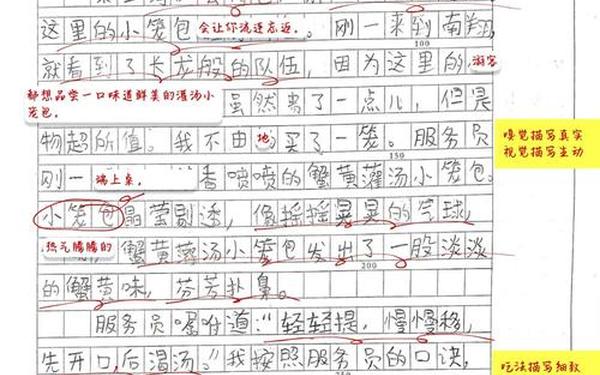 这里的小笼包会让你流连忘返。刚一来到南翔,
就看到了长龙般的队伍,因为这里的游客
都想品尝一口味道鲜美的灌汤小笼包。虽然贵了一点儿,但是
物超所值。我不由地买了一笼。服务员
刚一端上桌。香喷喷的蟹黄灌汤小笼包。
小笼包晶莹剔透,像摇摇晃晃的气球,
热气腾腾的蟹黄灌汤小笼包发出了一股淡淡
的蟹黄味,芬芳扑鼻。
服务员嘱咐道:“轻轻提,慢慢移,
先开口,后渴汤。”我按照服务员的口诀,
100
150
200
嗅觉描写真实
视觉描写生动
吃法描写细致